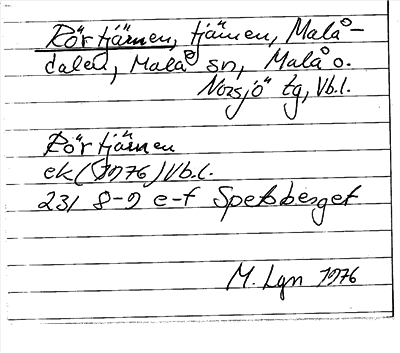 Rörtjärnen, tjärnen, Malå-
dalen, Malå sn, Malå o.
Norsjö tg, Vb.l.
Rörtjärnen
ek (1976) Vb.l.
231 8-9 e-f Spetsberget
M. Lgn 1976